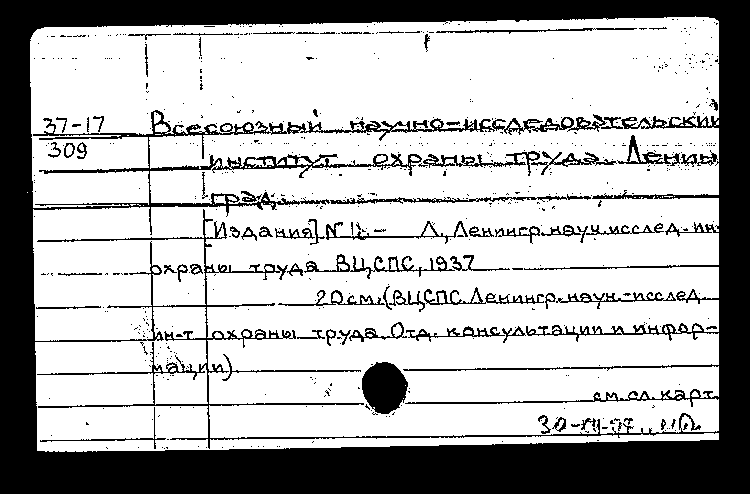 37-17 Всесоюзный научно-исследовательский
309 институт охраны труда. Ленин
град.
[Издания] № 1: - Л., Ленингр. науч. исслед. ин-
охраны труда ВЦСПС, 1937
20 см. (ВЦСПС. Ленингр. науч.-исслед.
ин-т охраны труда. Отд. консультации и инфор-
мации).
см. сл. карт.